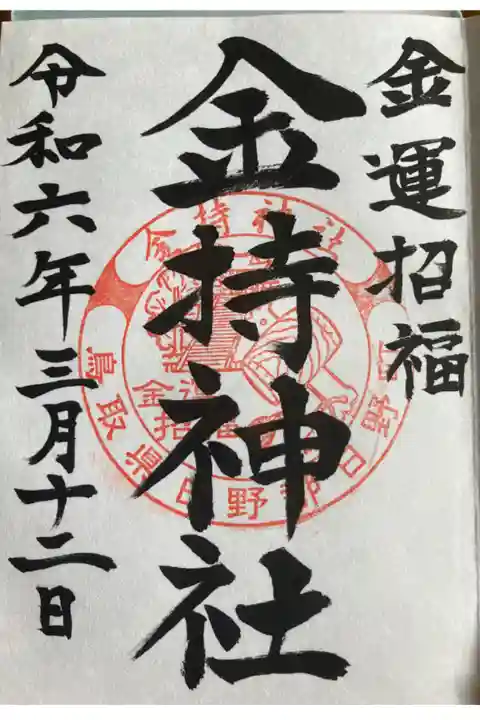 金運招福
金持神社
令和六年三月十二日
金持神社
鳥取県日野郡日野町